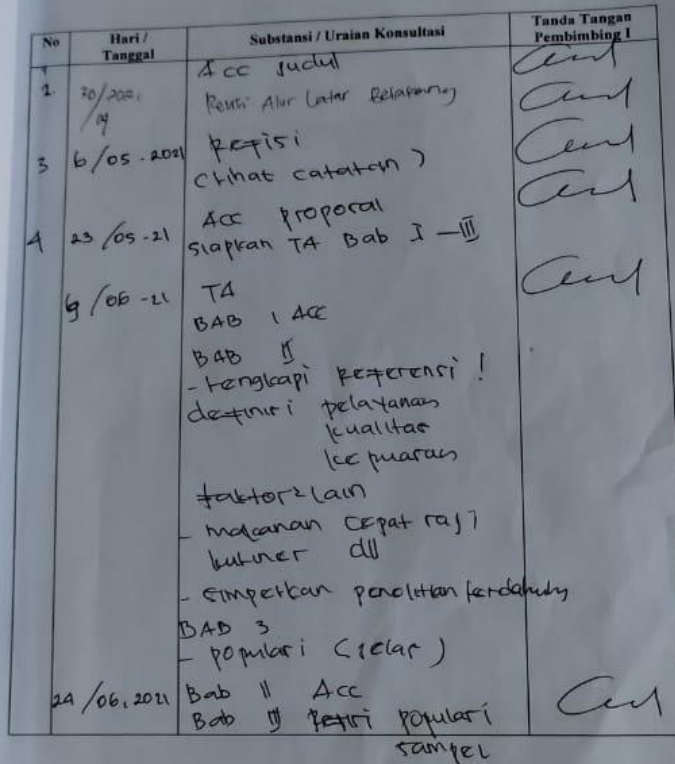 No Hari / Tanggal Substansi / Uraian Konsultasi Tanda Tangan Pembimbing I
1 Acc judul
2. 30/2021 /04 Revisi Alur Latar Belakang
3 6/05-2021 Refisi
(lihat catatan)
Acc proporal
4 23/05-21 siapkan TA Bab I-III
9/06-21 TA
BAB I ACC
BAB II
- Lengkapi Referensi !
definisi pelayanan
kualitas
kepuasan
faktor2 lain
- makanan cepat saji
kuliner dll
- simpelkan penelitian terdahulu
BAB 3
- populasi (jelas)
24/06.2021 Bab II Acc
Bab III Refisi populasi
sampel